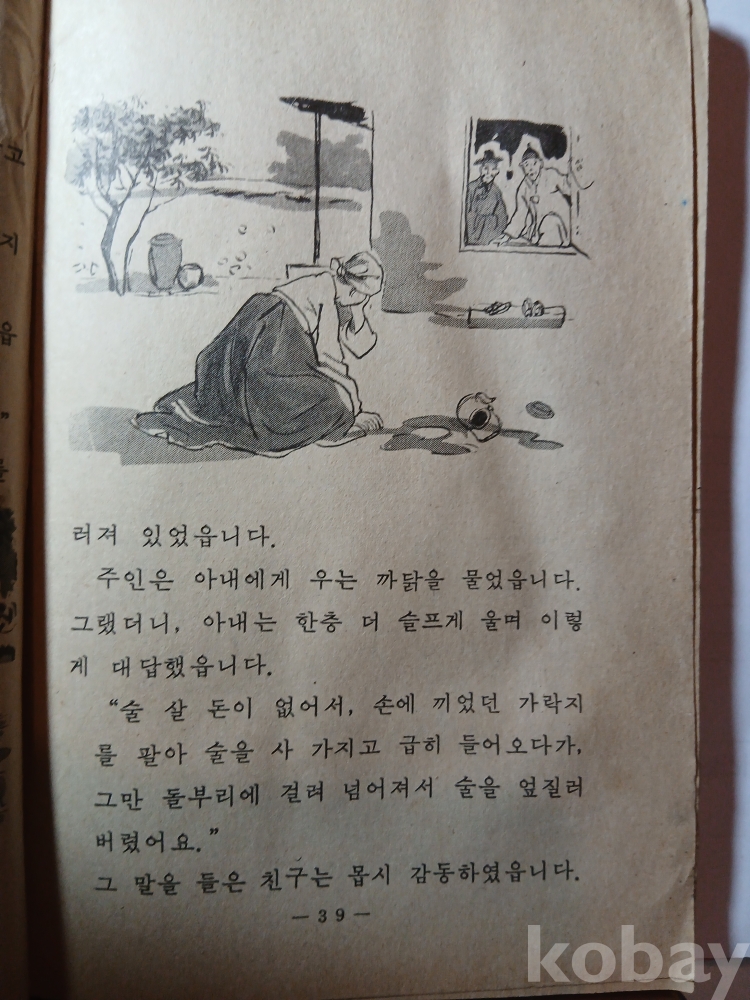 고
지
읍
”
를
러져 있었읍니다.
주인은 아내에게 우는 까닭을 물었읍니다.
그랬더니, 아내는 한층 더 슬프게 울며 이렇
게 대답했읍니다.
“술 살 돈이 없어서, 손에 끼었던 가락지
를 팔아 술을 사 가지고 급히 들어오다가,
그만 돌부리에 걸려 넘어져서 술을 엎질러
버렸어요.”
그 말을 들은 친구는 몹시 감동하였읍니다.
— 39 —
kobay